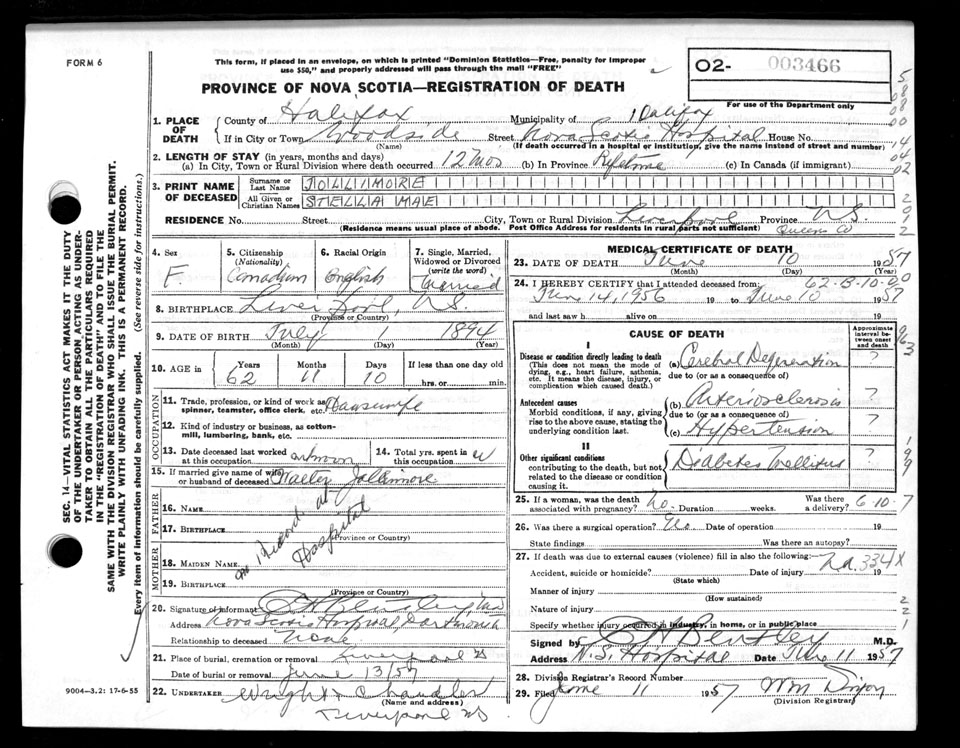 FORM 6
This form, if placed in an envelope, on which is printed "Dominion Statistics—Free, penalty for improper
use $50," and properly addressed will pass through the mail "FREE"
O2- 003466
For use of the Department only
PROVINCE OF NOVA SCOTIA—REGISTRATION OF DEATH
1. PLACE OF DEATH
County of Halifax Municipality of Halifax
If in City or Town Woodside Street Nova Scotia Hospital House No.
(Name) (If death occurred in a hospital or institution, give the name instead of street and number)
2. LENGTH OF STAY (in years, months and days)
(a) In City, Town or Rural Division where death occurred 12 Mos (b) In Province Lifetime (c) In Canada (if immigrant)
3. PRINT NAME OF DECEASED
Surname or Last Name JOLLIMORE
All Given or Christian Names STELLA MAE
RESIDENCE No. Street City, Town or Rural Division Liverpool Province N.S.
(Residence means usual place of abode. Post Office Address for residents in rural parts not sufficient) Queens Co
4. Sex
F.
5. Citizenship
(Nationality)
Canadian
6. Racial Origin
English
7. Single, Married,
Widowed or Divorced
(write the word)
Married
8. BIRTHPLACE Liverpool, N.S.
(Province or Country)
9. DATE OF BIRTH July 1 1894
(Month) (Day) (Year)
10. AGE Years Months Days If less than one day old
62 11 10 hrs. or min.
OCCUPATION
11. Trade, profession, or kind of work as
spinner, teamster, office clerk, etc. Housewife
12. Kind of industry or business, as cotton-
mill, lumbering, bank, etc.
13. Date deceased last worked
at this occupation unknown
14. Total yrs. spent in
this occupation u
15. If married give name of wife
or husband of deceased Walter Jollimore
FATHER
16. NAME
17. BIRTHPLACE
(Province or Country)
MOTHER
18. MAIDEN NAME
19. BIRTHPLACE
(Province or Country)
no Record at
Hospital
20. Signature of informant
Address Nova Scotia Hospital, Dartmouth
Relationship to deceased None
21. Place of burial, cremation or removal Liverpool NS
Date of burial or removal June 13/57
22. UNDERTAKER Wright Chandler
(Name and address)
Liverpool NS
MEDICAL CERTIFICATE OF DEATH
23. DATE OF DEATH June 10 1957
(Month) (Day) (Year)
24. I HEREBY CERTIFY that I attended deceased from: 62-B-10-0
June 14, 1956 19 to June 10 1957
and last saw h. alive on 19
CAUSE OF DEATH
Approximate
interval be-
tween onset
and death
I
Disease or condition directly leading to death
(This does not mean the mode of
dying, e.g., heart failure, asthenia,
etc. It means the disease, injury, or
complication which caused death.)
(a) Cerebral Degeneration ?
due to (or as a consequence of)
Antecedent causes
Morbid conditions, if any, giving
rise to the above cause, stating the
underlying condition last.
(b) Arteriosclerosis ?
due to (or as a consequence of)
(c) Hypertension ?
II
Other significant conditions
contributing to the death, but not
related to the disease or condition
causing it.
Diabetes Mellitus ?
25. If a woman, was the death
associated with pregnancy? No. Duration weeks. Was there
a delivery? 6-10-7
26. Was there a surgical operation? No. Date of operation 19
State findings Was there an autopsy?
27. If death was due to external causes (violence) fill in also the following:
Accident, suicide or homicide? Date of injury 19
(State which)
N.A. 334X
Manner of injury
(How sustained)
Nature of injury
Specify whether injury occurred in industry, in home, or in public place
Signed by M.D.
Address N.S. Hospital Date June 11 1957
28. Division Registrar's Record Number
29. Filed June 11 1957 Wm Dixon
(Division Registrar)
9004—3.2: 17-6-55
SEC. 14—VITAL STATISTICS ACT MAKES IT THE DUTY
OF THE UNDERTAKER OR PERSON ACTING AS UNDER-
TAKER TO OBTAIN ALL THE PARTICULARS REQUIRED
IN THE "REGISTRATION OF DEATH" AND TO FILE THE
SAME WITH THE DIVISION REGISTRAR WHO SHALL ISSUE THE BURIAL PERMIT.
WRITE PLAINLY WITH UNFADING INK. THIS IS A PERMANENT RECORD.
Every item of information should be carefully supplied. (See reverse side for instructions.)